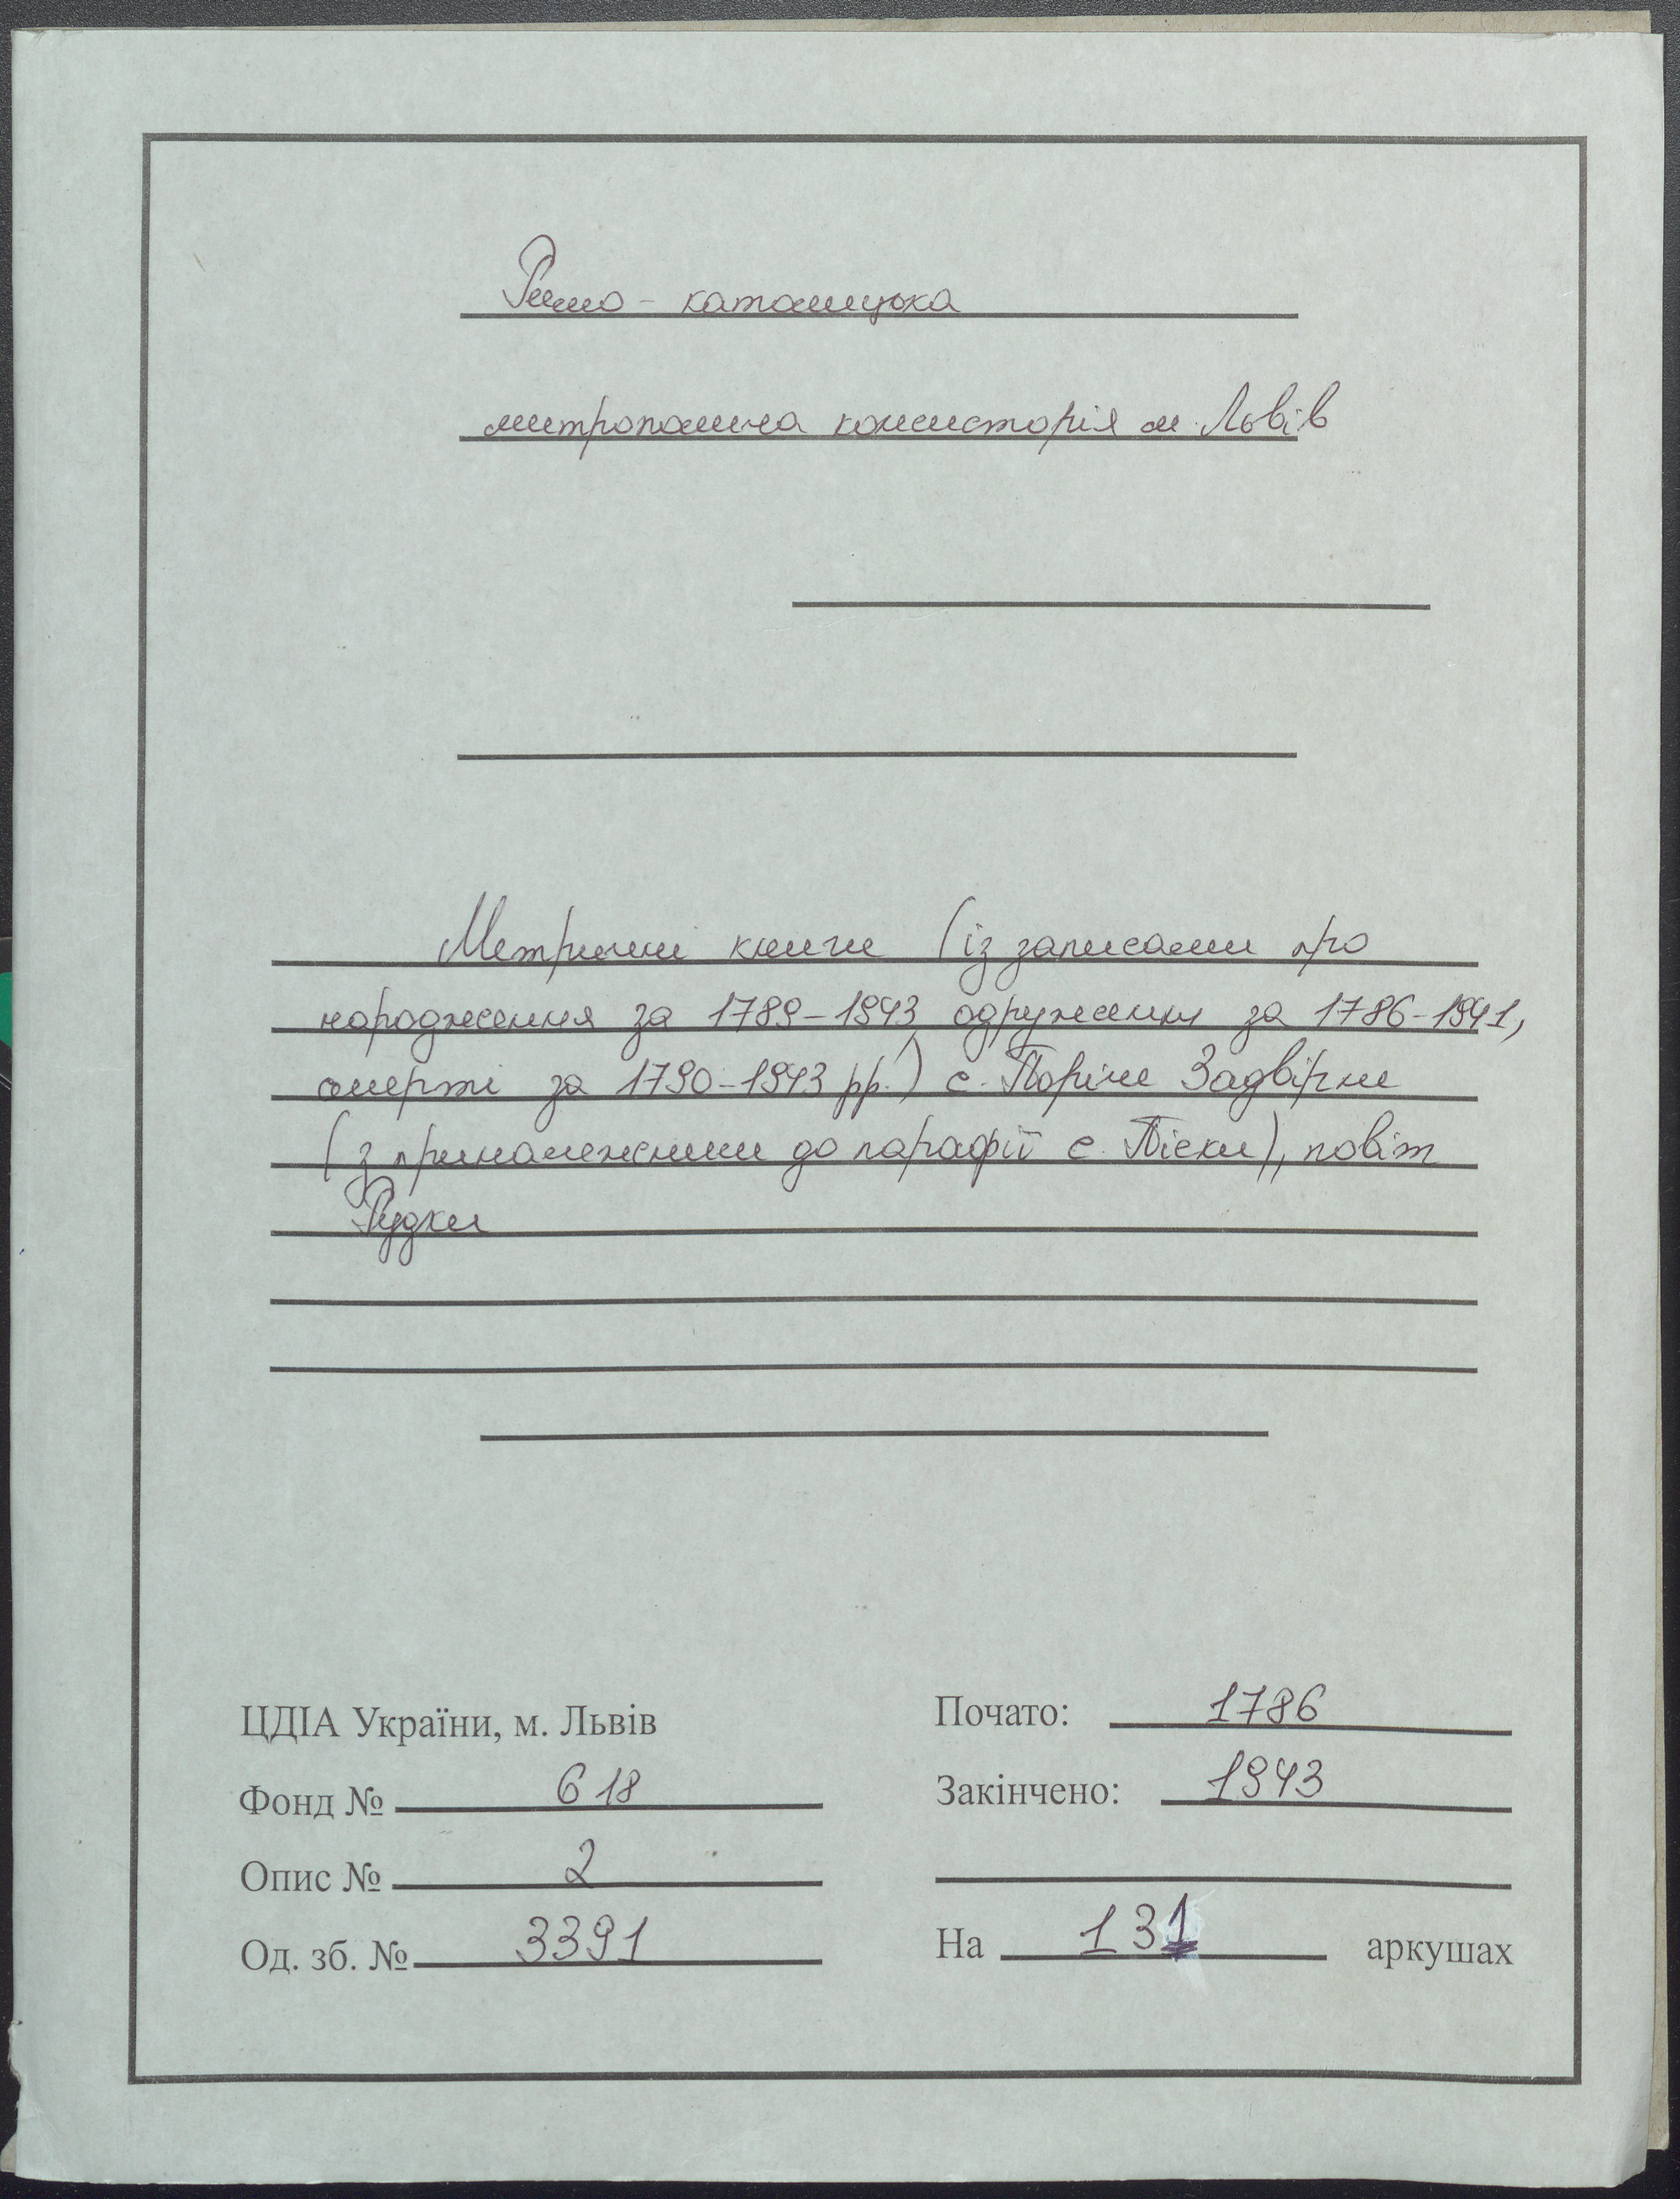 Римо-католицька
митрополича консисторія м. Львів
Метричні книги (із записами про
народження за 1789-1943, одруження за 1786-1941,
смерті за 1790-1943 рр.) с. Поріче Задвірне
(з приналежними до парафії с. Піски), повіт
Рудки
ЦДІА України, м. Львів
Фонд № 618
Опис № 2
Од. зб. № 3391
Почато: 1786
Закінчено: 1943
На 131 аркушах